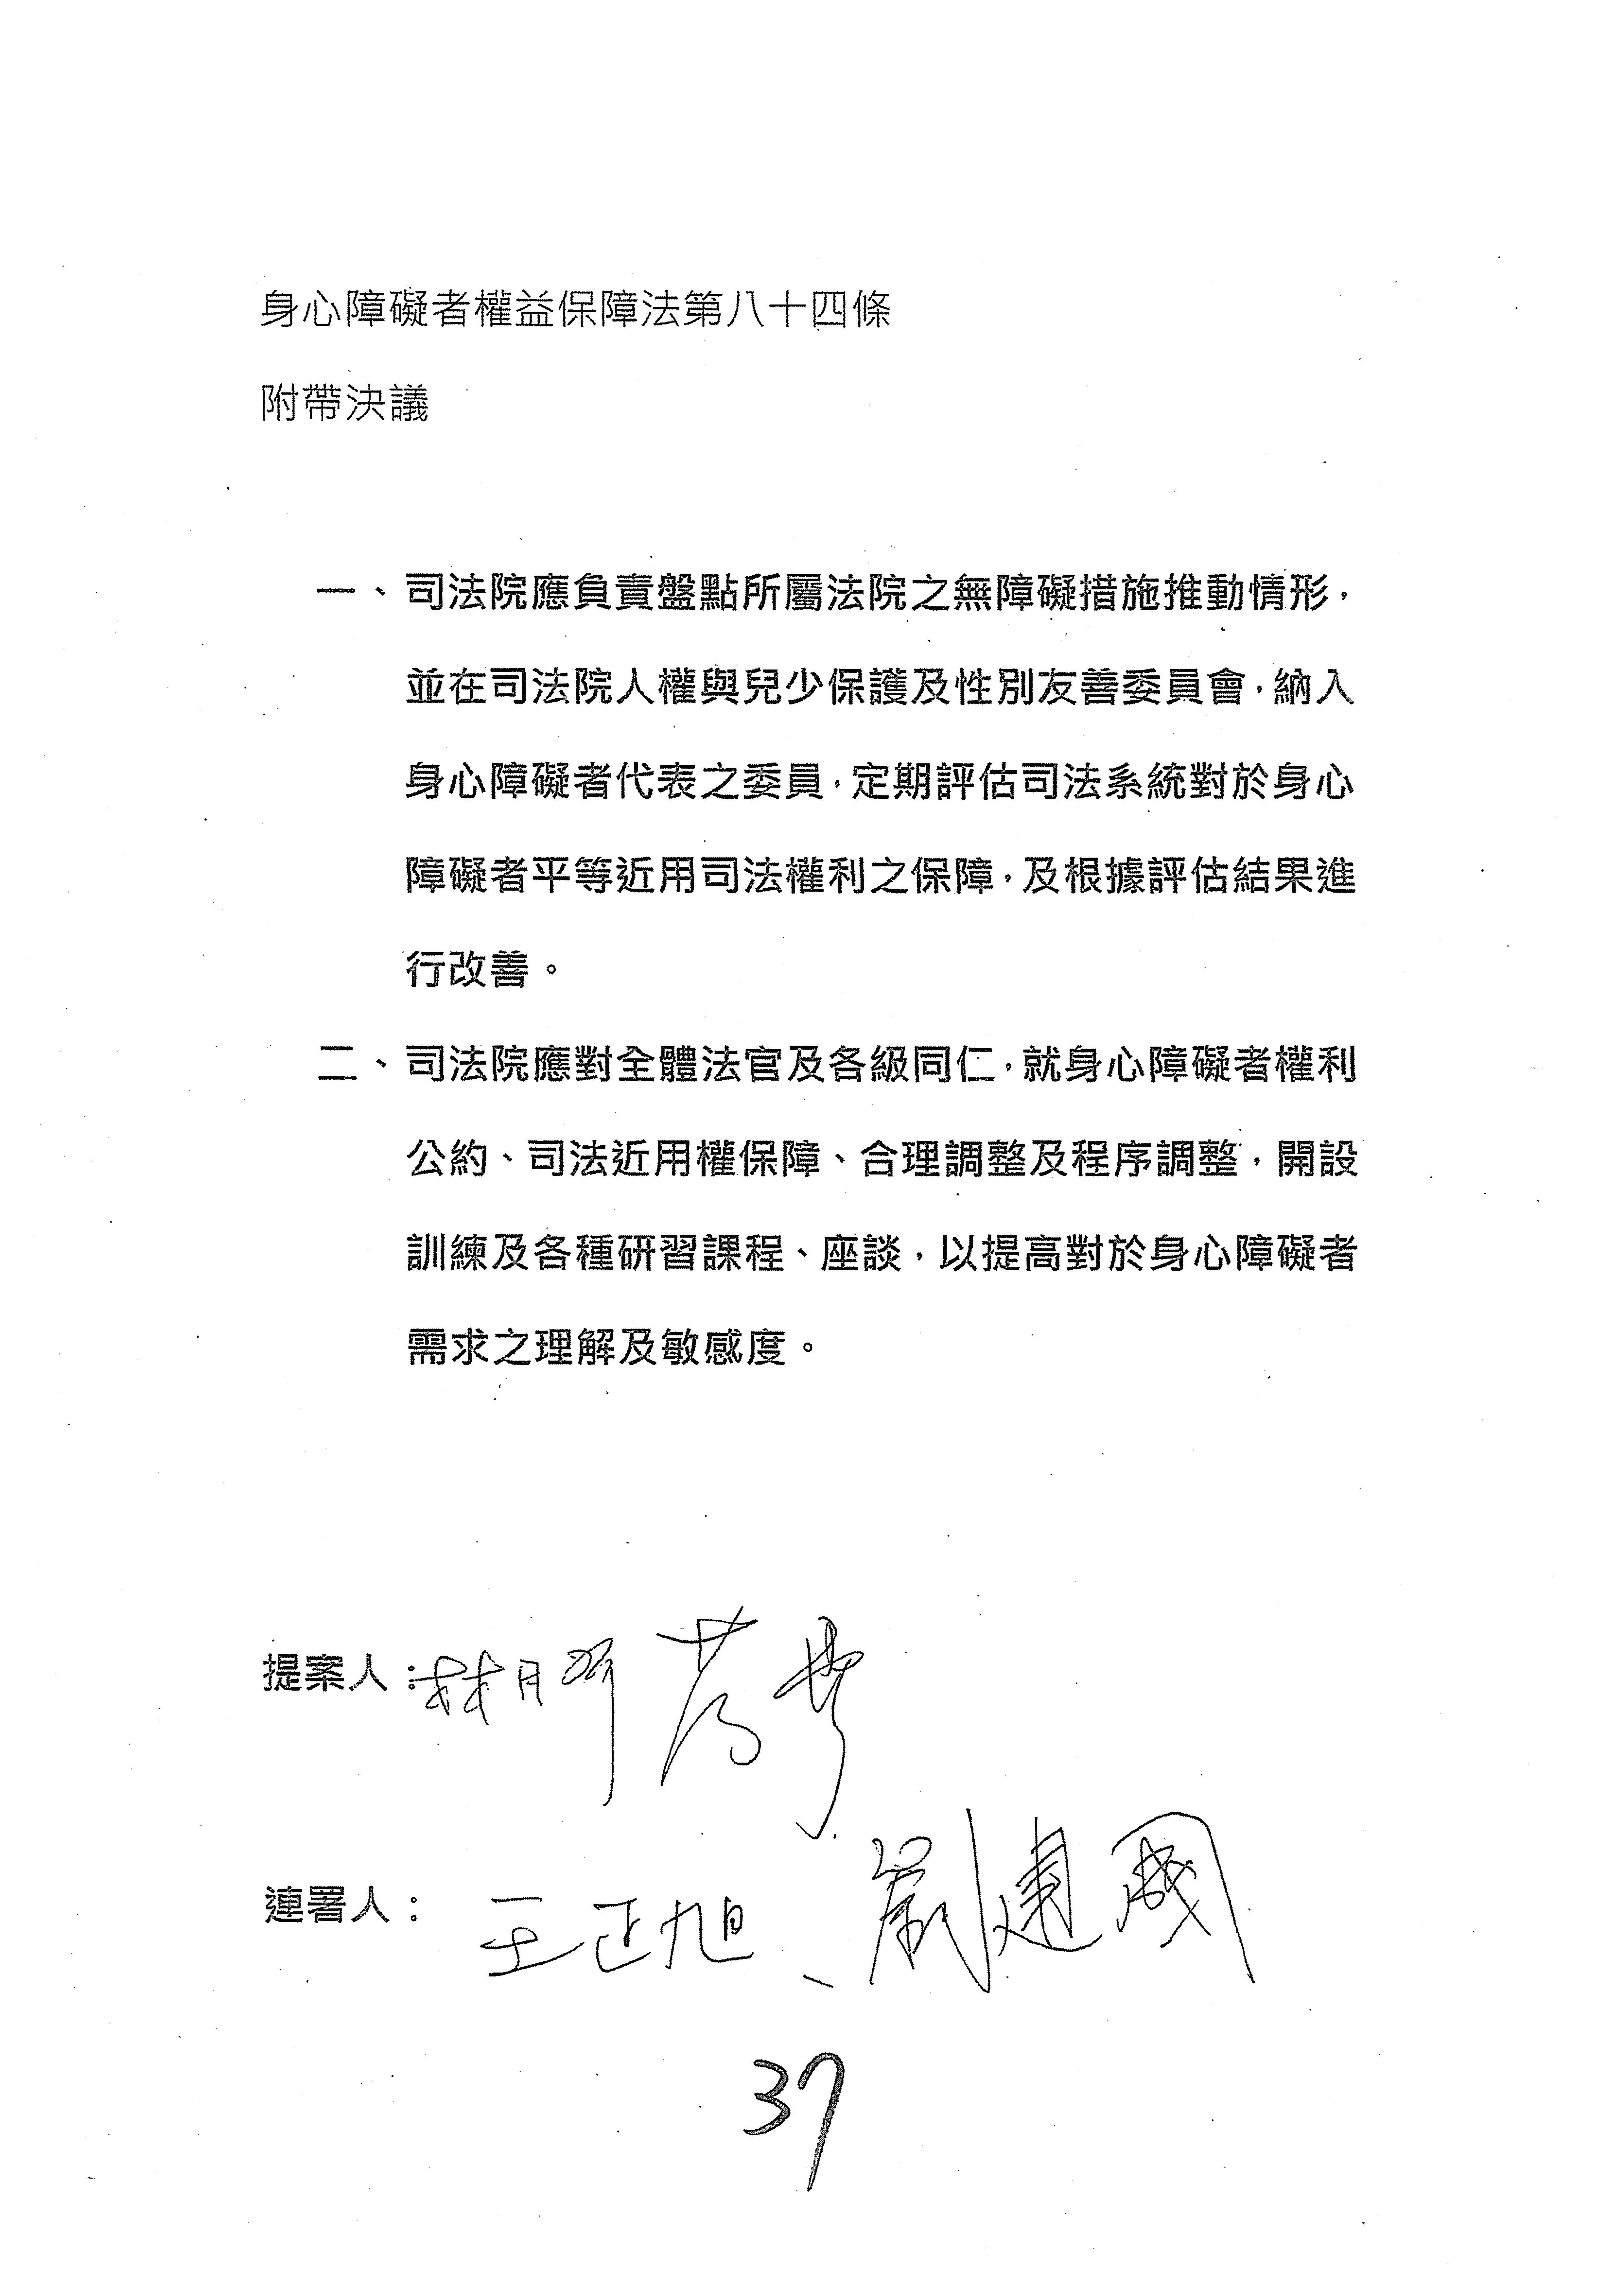 身心障礙者權益保障法第八十四條
附帶決議
一、司法院應負責盤點所屬法院之無障礙措施推動情形，
並在司法院人權與兒少保護及性別友善委員會，納入
身心障礙者代表之委員，定期評估司法系統對於身心
障礙者平等近用司法權利之保障，及根據評估結果進
行改善。
二、司法院應對全體法官及各級同仁，就身心障礙者權利
公約、司法近用權保障、合理調整及程序調整，開設
訓練及各種研習課程、座談，以提高對於身心障礙者
需求之理解及敏感度。
提案人：林月琴
連署人：王正旭、劉建國
37